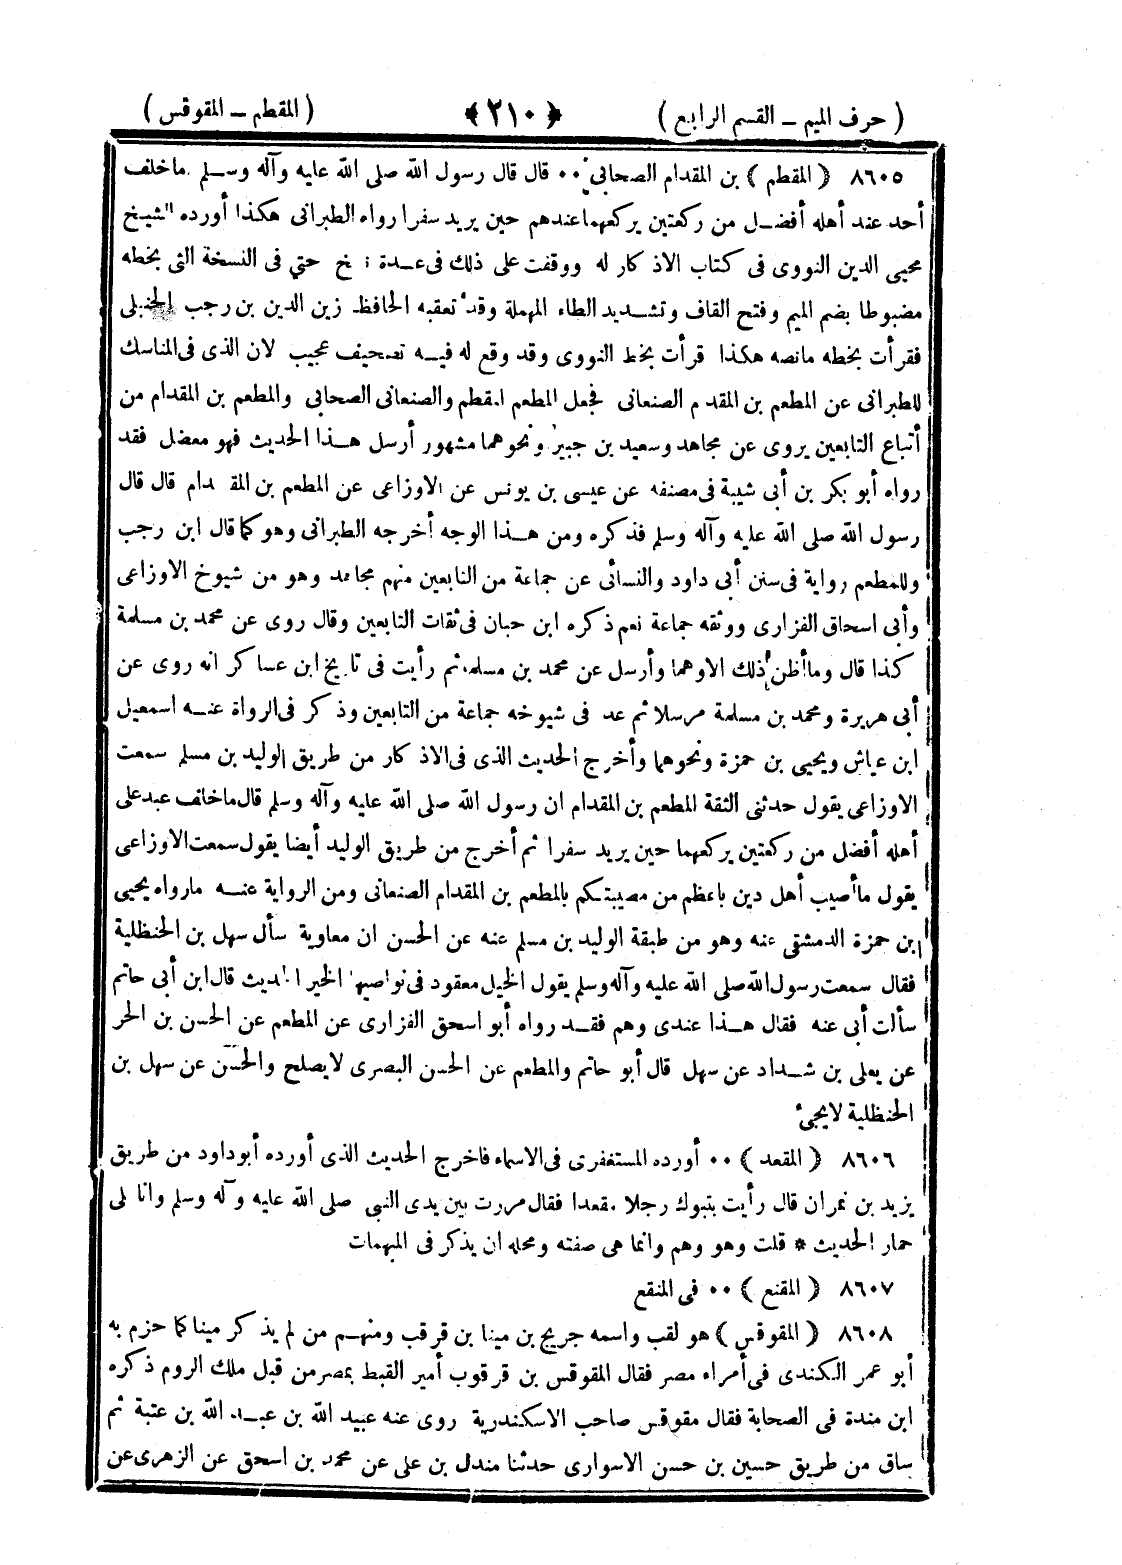 ( حرف الميم ــ القسم الرابع ) ﴿ ٢١٠ ﴾ ( المقطم ــ المقوقس )
٨٦٠٥ ( المقطم ) بن المقدام الصحابي ٠٠ قال قال رسول الله صلى الله عليه وآله وسلم ماخلف
أحد عند أهله أفضل من ركعتين يركعهما عندهم حين يريد سفرا رواه الطبرانى هكذا أورده الشيخ
محيي الدين النووى فى كتاب الاذكار له ووقفت على ذلك فى عدة نسخ حتي فى النسخة التى بخطه
مضبوطا بضم الميم وفتح القاف وتشديد الطاء المهملة وقد تعقبه الحافظ زين الدين بن رجب الحنبلى
فقرأت بخطه مانصه هكذا قرأت بخط النووى وقد وقع له فيه تصحيف عجيب لان الذى فى المناسك
للطبرانى عن المطعم بن المقدم الصنعانى فجعل المطعم المقطم والصنعانى الصحابي والمطعم بن المقدام من
أتباع التابعين يروى عن مجاهد وسعيد بن جبير ونحوهما مشهور أرسل هذا الحديث فهو معضل فقد
رواه أبو بكر بن أبي شيبة فى مصنفه عن عيسى بن يونس عن الاوزاعى عن المطعم بن المقدام قال قال
رسول الله صلى الله عليه وآله وسلم فذكره ومن هذا الوجه أخرجه الطبرانى وهو كما قال ابن رجب
وللمطعم رواية فى سنن أبى داود والنسائى عن جماعة من التابعين منهم مجاهد وهو من شيوخ الاوزاعى
وأبى اسحاق الفزارى ووثقه جماعة نعم ذكره ابن حبان فى ثقات التابعين وقال روى عن محمد بن مسلمة
كذا قال وما أظن ذلك الا وهما وأرسل عن محمد بن مسلمه ثم رأيت فى تاريخ ابن عساكر انه روى عن
أبى هريرة ومحمد بن مسلمة مرسلا ثم عد فى شيوخه جماعة من التابعين وذكر فى الرواة عنه اسمعيل
ابن عياش ويحيى بن حمزة ونحوهما وأخرج الحديث الذى فى الاذكار من طريق الوليد بن مسلم سمعت
الاوزاعى يقول حدثنى الثقة المطعم بن المقدام ان رسول الله صلى الله عليه وآله وسلم قال ماخلف عبد على
أهله أفضل من ركعتين يركعهما حين يريد سفرا ثم أخرج من طريق الوليد أيضا يقول سمعت الاوزاعى
يقول ما أصيب أهل دين باعظم من مصيبتكم بالمطعم بن المقدام الصنعانى ومن الرواية عنه مارواه يحيى
ابن حمزة الدمشقى عنه وهو من طبقة الوليد بن مسلم عنه عن الحسن ان معاوية سأل سهل بن الحنظلية
فقال سمعت رسول الله صلى الله عليه وآله وسلم يقول الخيل معقود فى نواصيها الخير الحديث قال ابن أبى حاتم
سألت أبى عنه فقال هذا عندى وهم فقد رواه أبو اسحق الفزارى عن المطعم عن الحسن بن الحر
عن يعلى بن شداد عن سهل قال أبو حاتم والمطعم عن الحسن البصرى لا يصلح والحسن عن سهل بن
الحنظلية لايجيء
٨٦٠٦ ( المقعد ) ٠٠ أورده المستغفرى فى الاسماء فاخرج الحديث الذى أورده أبوداود من طريق
يزيد بن نمران قال رأيت بتبوك رجلا مقعدا فقال مررت بين يدى النبى صلى الله عليه وآله وسلم وانا لى
حمار الحديث * قلت وهو وهم وانما هى صفته ومحله ان يذكر فى المبهمات
٨٦٠٧ ( المقنع ) ٠٠ فى المنقع
٨٦٠٨ ( المقوقس ) هو لقب واسمه جريج بن مينا بن قرقب ومنهم من لم يذكر مينا كما حزم به
أبو عمر الكندى فى أمراء مصر فقال المقوقس بن قرقوب أمير القبط بمصر من قبل ملك الروم ذكره
ابن مندة فى الصحابة فقال مقوقس صاحب الاسكندرية روى عنه عبيد الله بن عبد الله بن عتبة ثم
ساق من طريق حسين بن حسن الاسوارى حدثنا مندل بن على عن محمد بن اسحق عن الزهرى عن